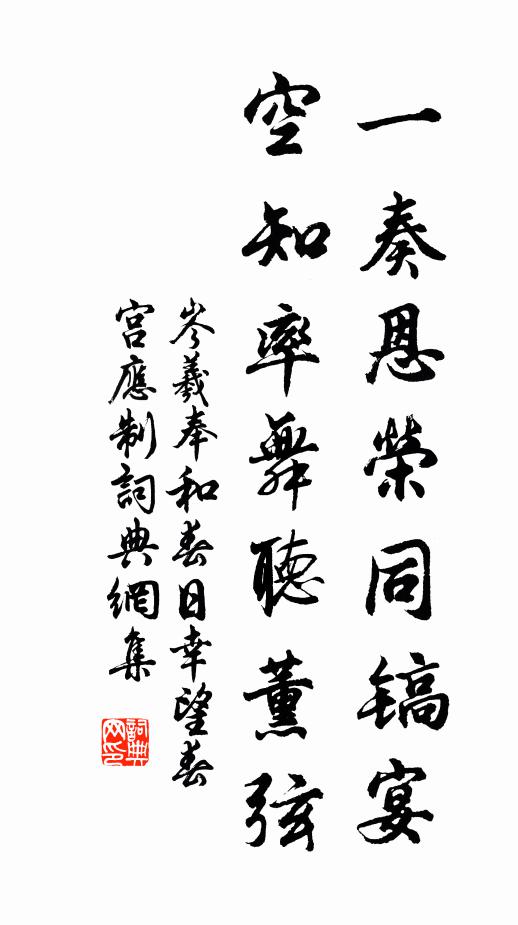 一奏恩榮同镐宴
空知率舞聽薰弦
岑羲奉和春日幸望春
宮應制詞典網集
詞典
网印